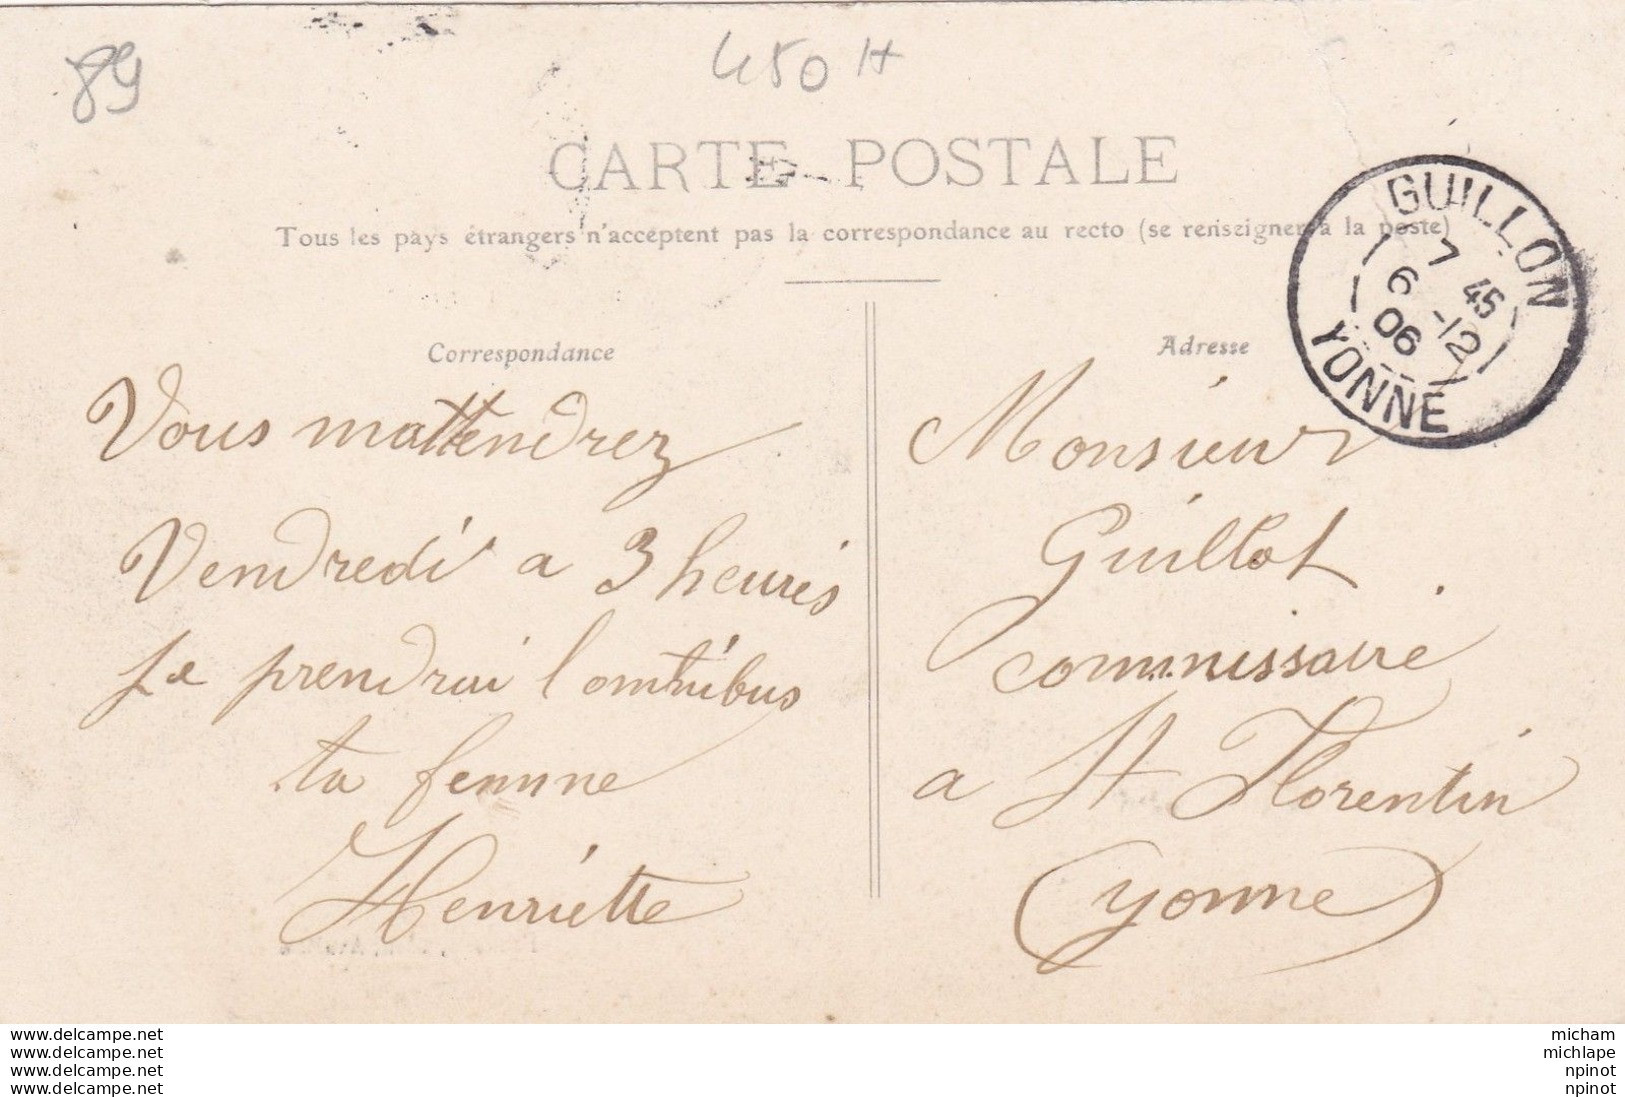 89
450 H
CARTE POSTALE
Tous les pays étrangers n'acceptent pas la correspondance au recto (se renseigner à la poste)
GUILLON
7 45
6 -12
06
YONNE
Correspondance
Vous mattendrez
Vendredi a 3 heures
je prendrai l omnibus
ta femme
Henriette
Adresse
Monsieur
Guillot
commissaire
a St Florentin
(Yonne)
www.delcampe.net
www.delcampe.net
www.delcampe.net
www.delcampe.net
micham
michlape
npinot
npinot